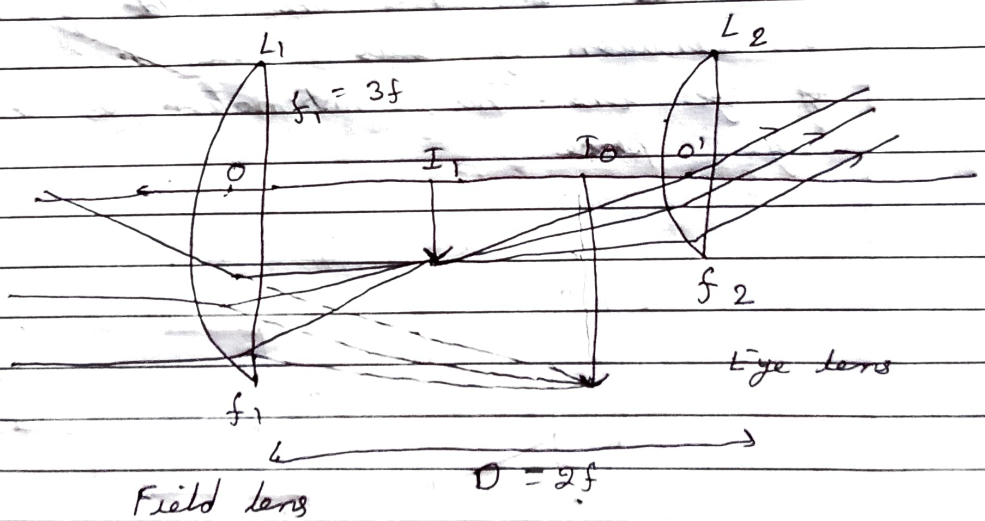 L1
L2
f1 = 3f
O
I1
I0
O'
f2
Eye lens
f1
D = 2f
Field lens